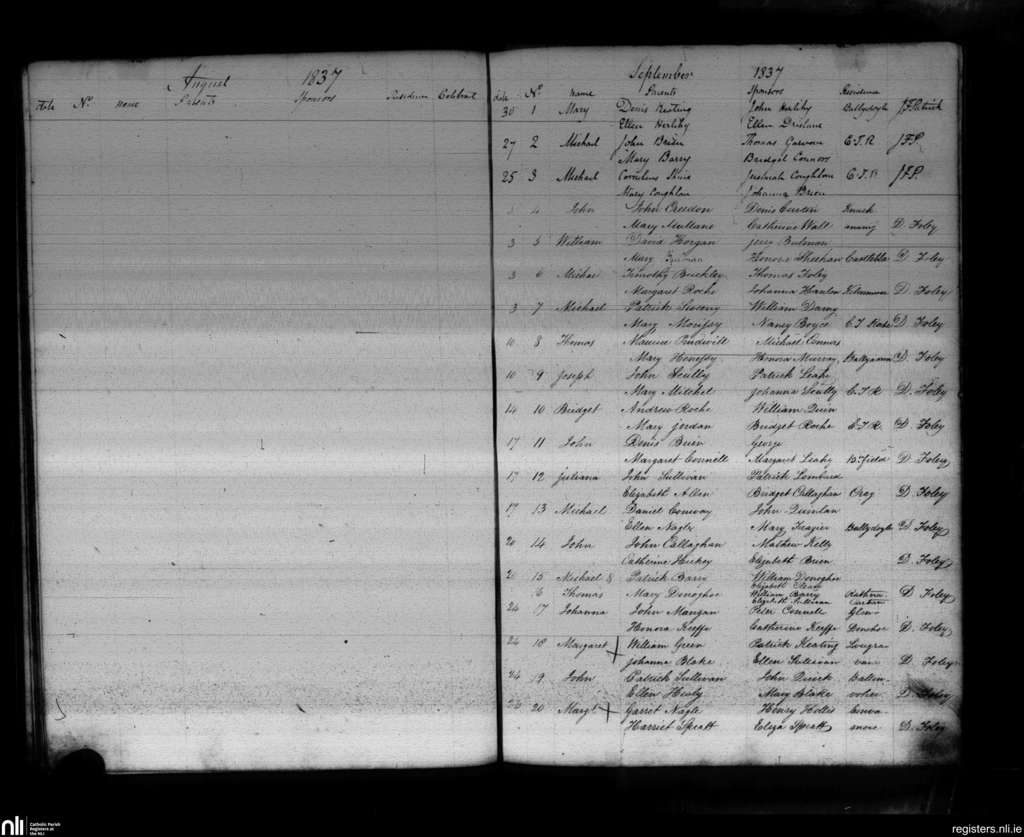 August 1837
Date No. Name Parents Sponsors Residence Celebrat
September 1837
Date No. Name Parents Sponsors Residence
30 1 Mary Denis Keating John Herlihy Ballydoyle J F Patrick
Ellen Herlihy Ellen
27 2 Michael John Brien Thomas C.T.R J.F.P.
Mary Barry Bridget Connors
25 3 Michael Cornelius Jeremiah Coughlan C.T.R J.F.P.
Mary Coughlan Johanna Brien
4 John John Creedon Denis Curtin
Mary Mullane Catherine Wall D. Foley
3 5 William David Horgan Jerry
Mary Honora Sheehan D Foley
3 6 Michael Timothy Buckley Thomas Foley
Margaret Roche Johanna Hanlon D. Foley
3 7 Michael Patrick William
Mary Nancy Boyce C.T. Roche D. Foley
10 8 Thomas Maurice Michael Connors
Mary Henessy Honora Murray D. Foley
10 9 Joseph John Scully Patrick Leahy
Mary Mitchel Johanna Scully C.T.R D. Foley
14 10 Bridget Andrew Roche William Quin
Mary Jordan Bridget Roche C.T.R. D. Foley
17 11 John Denis Brien George
Margaret Connell Margaret Leahy D Foley
17 12 Juliana John Sullivan Patrick Lombard
Elizabeth Allen Bridget Callaghan Crag D. Foley
17 13 Michael Daniel Conway John Quinlan
Ellen Nagle Mary Frazier Ballydoyle D. Foley
20 14 John John Callaghan Mathew Kelly
Catherine Hickey Elizabeth Brien D. Foley
20 15 Michael & Patrick Barry William Donoghoe
Elizabeth
16 Thomas Mary Donoghoe William Barry D Foley
Elizabeth Sullivan
24 17 Johanna John Mangan Peter Connell Glen
Honora Keeffe Catharine Keeffe Donohoe D. Foley
24 18 Margaret William Green Patrick Keating
Johanna Blake Ellen Sullivan D Foley
24 19 John Patrick Sullivan John Quirk
Ellen Mary Blake D. Foley
20 Margt Garret Nagle Henry Hollis
Harriet Spratt Eliza Spratt more D. Foley
nli
Catholic Parish
Registers at
the NLI
registers.nli.ie